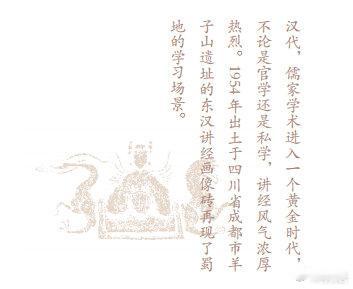 汉代，儒家学术进入一个黄金时代，
不论是官学还是私学，讲经风气浓厚
热烈。1954年出土于四川省成都市羊
子山遗址的东汉讲经画像砖再现了蜀
地的学习场景。